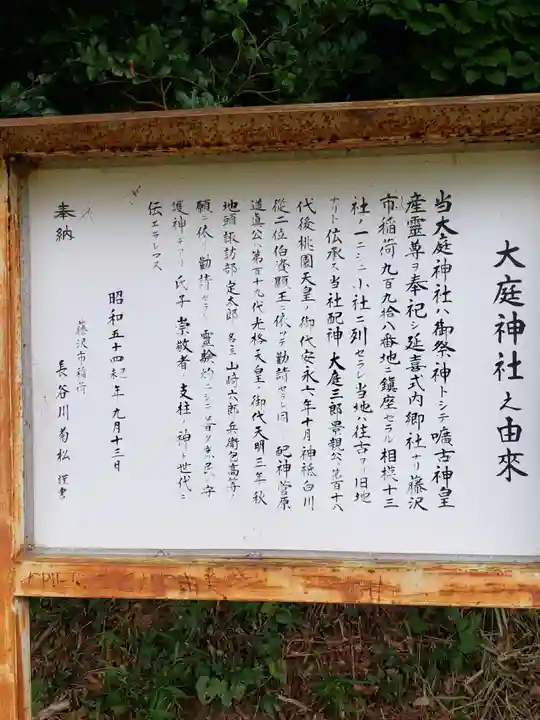 大庭神社之由來
当大庭神社ハ御祭神トシテ曠古神皇
産霊尊ヲ奉祀シ延喜式内郷社ナリ藤沢
市稲荷九百九拾八番地ニ鎮座セラル相模十三
社ノ一ニシテ小社ニ列セラレ当地ハ往古ヨリ旧地
ナリト伝承ス当社配神大庭三郎景親公ハ第百十八
代後桃園天皇ノ御代安永六年十月神祇白川
従二位伯資顕王ニ依ッテ勧請セラレ同 配神菅原
道真公ハ第百十九代光格天皇ノ御代天明三年秋
地頭諏訪部定太郎名主山崎六郎兵衛包高等ノ
願ニ依リ勧請セラル霊験灼ニシテ
護神デアリ氏子崇敬者ノ支柱ノ神ト世代ニ
伝エラレマス
昭和五十四未年九月十三日
藤沢市稲荷
奉納 長谷川菊松